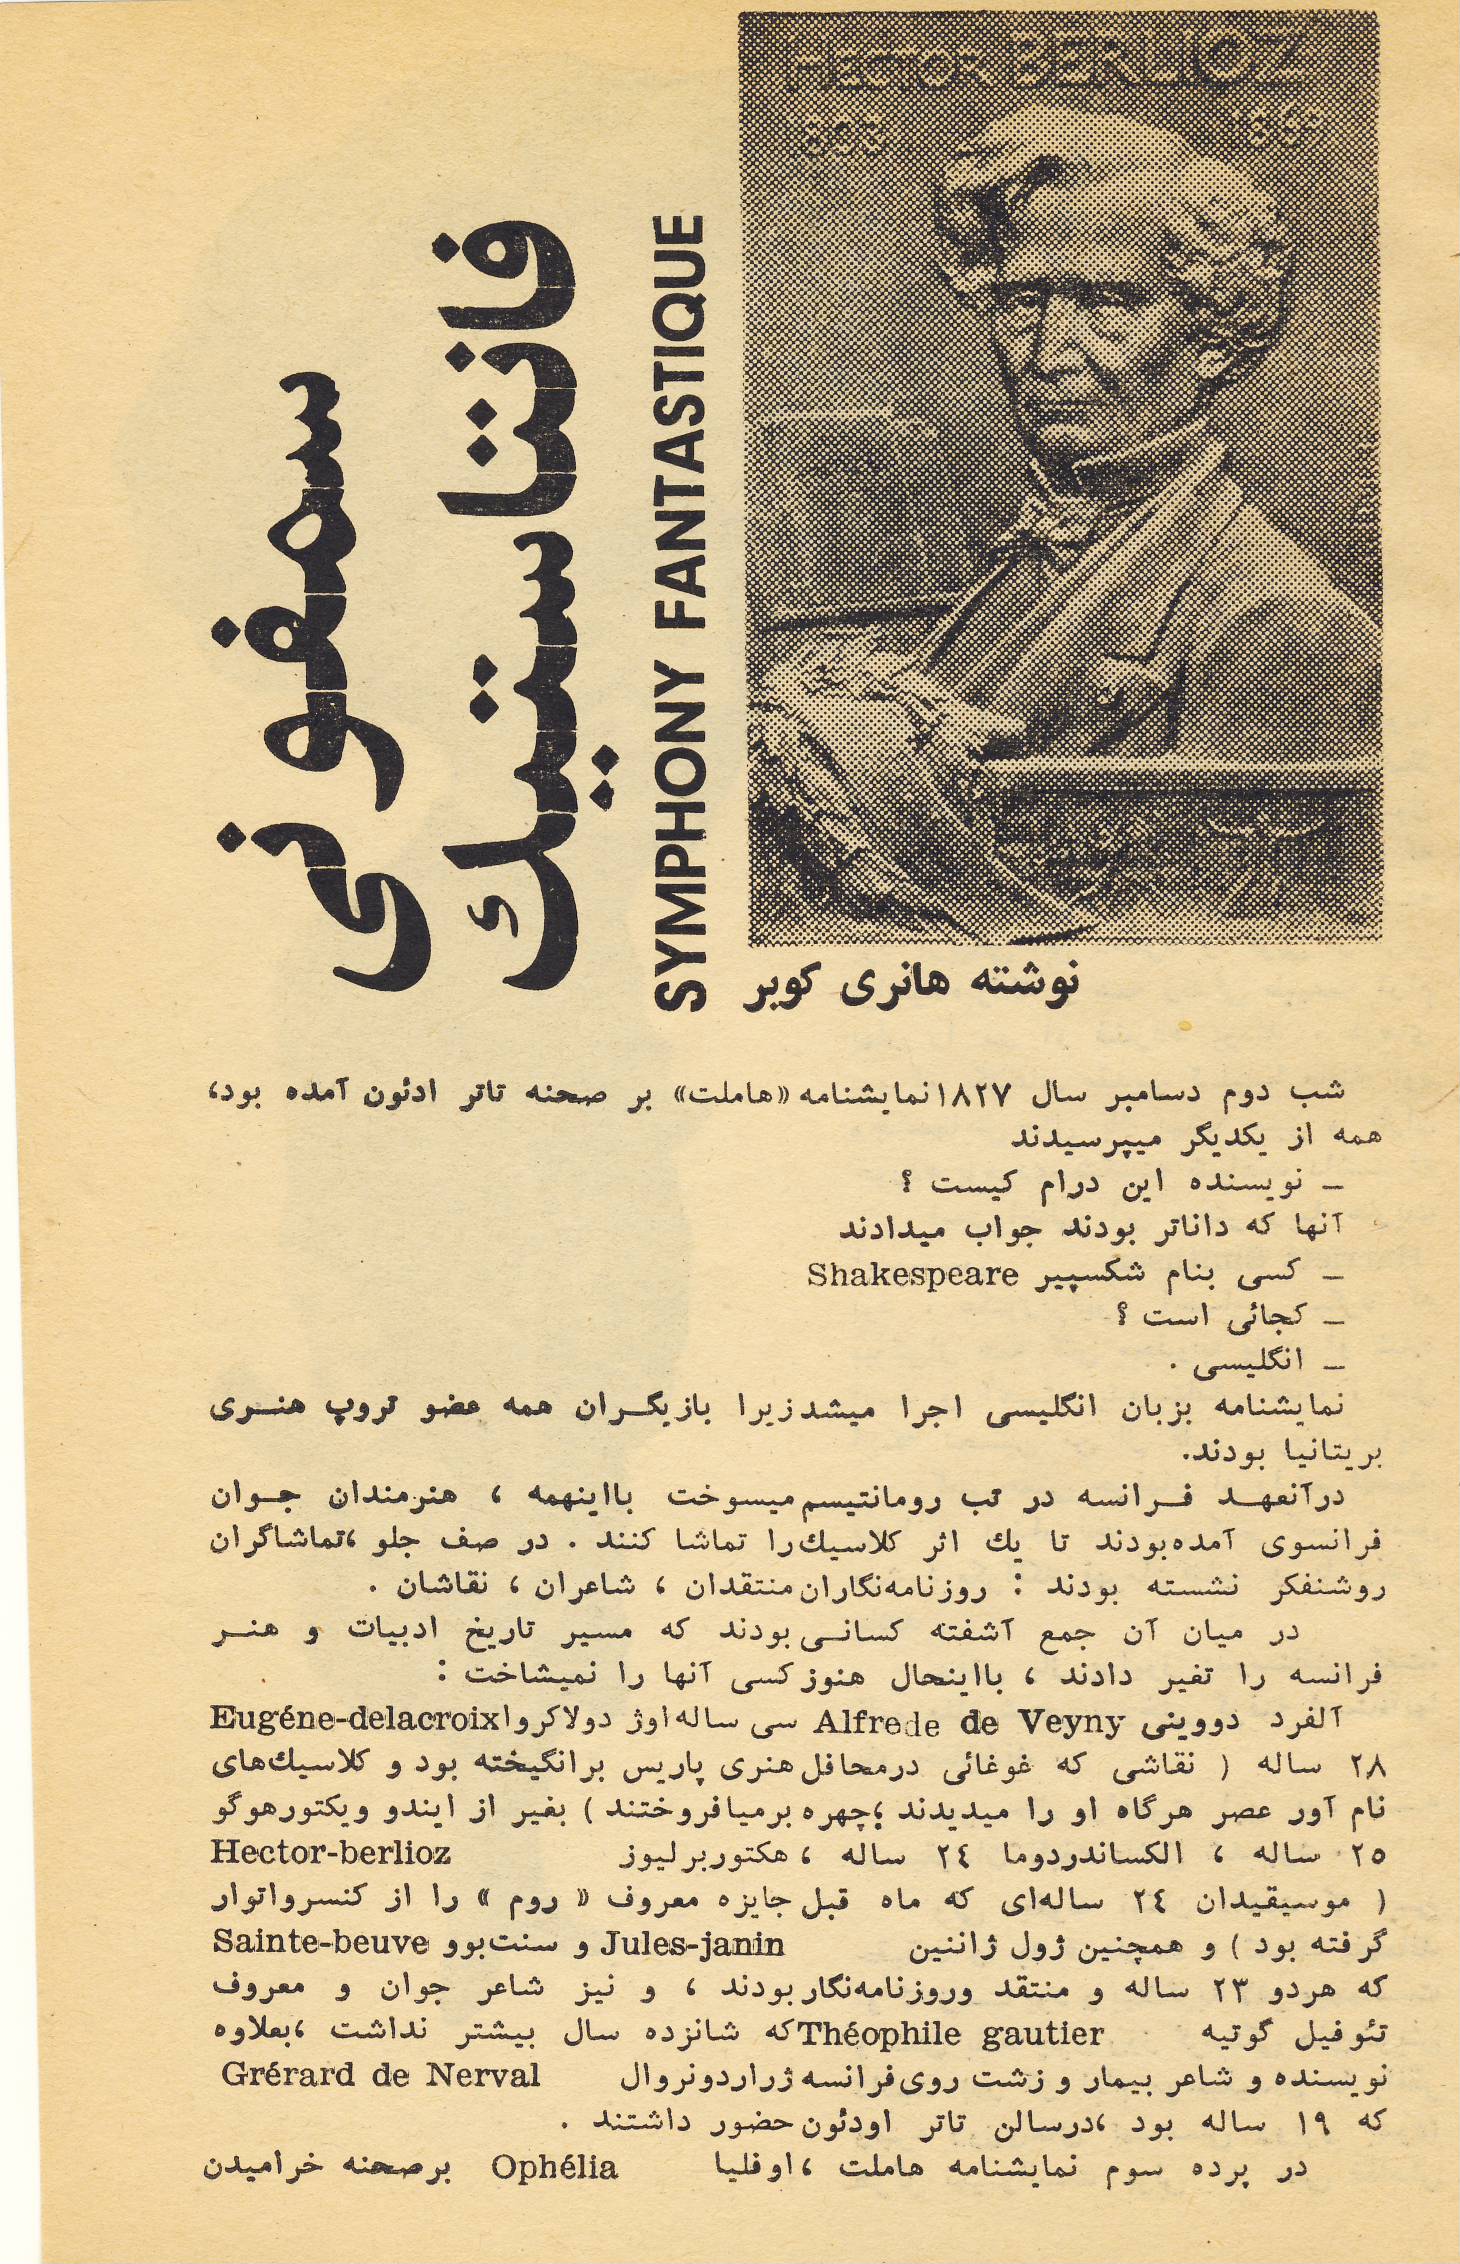 HECTOR BERLIOZ
سمفونی
فانتاستیك
SYMPHONY FANTASTIQUE
نوشته هانری کوبر
شب دوم دسامبر سال ۱۸۲۷ نمایشنامه «هاملت» بر صحنه تاتر ادئون آمده بود،
همه از یکدیگر میپرسیدند
ـ نویسنده این درام کیست ؟
آنها که داناتر بودند جواب میدادند
ـ کسی بنام شکسپیر Shakespeare
ـ کجائی است ؟
ـ انگلیسی .
نمایشنامه بزبان انگلیسی اجرا میشد زیرا بازیگـران همه عضو تروپ هنـری
بریتانیا بودند.
درآنعهـد فـرانسه در تب رومانتیسم میسوخت بااینهمه ، هنرمندان جـوان
فرانسوی آمده‌بودند تا یك اثر کلاسیك را تماشا کنند . در صف جلو ،تماشاگران
روشنفکر نشسته بودند : روزنامه‌نگاران منتقدان ، شاعران ، نقاشان .
در میان آن جمع آشفته کسانـی بودند که مسیر تاریخ ادبیات و هنـر
فرانسه را تفیر دادند ، بااینحال هنوز کسی آنها را نمیشاخت :
آلفرد دووینی Alfrede de Veyny سی ساله اوژ دولاکروا Eugéne-delacroix
۲۸ ساله ( نقاشی که غوغائی درمحافل هنری پاریس برانگیخته بود و کلاسیك‌های
نام آور عصر هرگاه او را میدیدند ؛چهره برمیافروختند ) بغیر از ایندو ویکتورهوگو
۲۵ ساله ، الکساندردوما ۲٤ ساله ، هکتوربرلیوز Hector-berlioz
( موسیقیدان ۲٤ ساله‌ای که ماه قبل جایزه معروف « روم » را از کنسرواتوار
گرفته بود ) و همچنین ژول ژاننین Jules-janin و سنت‌بوو Sainte-beuve
که هردو ۲۳ ساله و منتقد وروزنامه‌نگار بودند ، و نیز شاعر جوان و معروف
تئوفیل گوتیه Théophile gautier که شانزده سال بیشتر نداشت ،بعلاوه
نویسنده و شاعر بیمار و زشت روی فرانسه ژراردونروال Grérard de Nerval
که ۱۹ ساله بود ،درسالن تاتر اودئون حضور داشتند .
در پرده سوم نمایشنامه هاملت ،اوفلیا Ophélia برصحنه خرامیدن